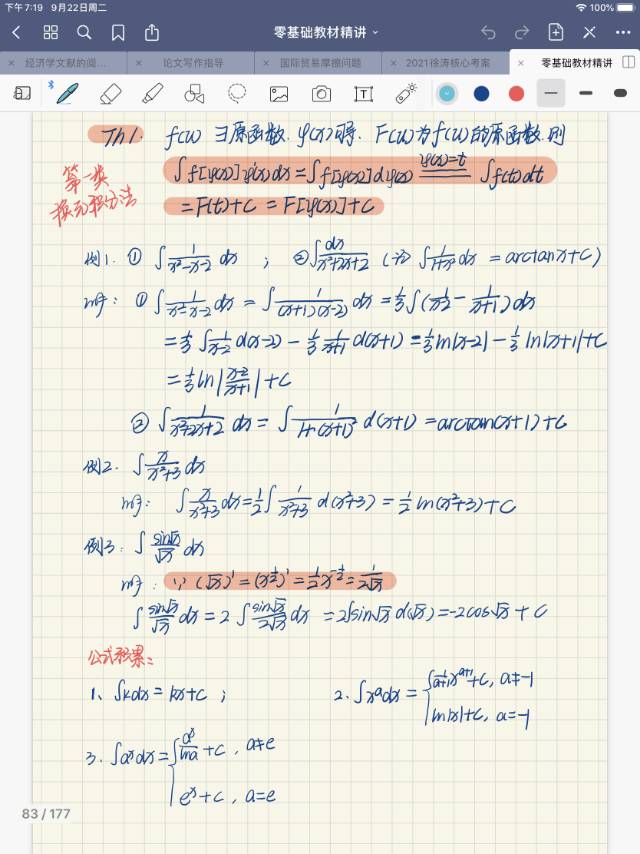 下午7:19 9月22日周二 100%
零基础教材精讲
× 经济学文献的阅... × 论文写作指导 × 国际贸易摩擦问题 × 2021徐涛核心考案 × 零基础教材精讲
Th1. f(x) ∃原函数. φ(x)可导. F(x)为f(x)的原函数. 则
第一类
换元积分法
∫f[φ(x)]φ'(x)dx = ∫f[φ(x)]dφ(x) φ(x)=t ∫f(t)dt
= F(t)+C = F[φ(x)]+C
例1. ① ∫1/(x²-x-2) dx ; ② ∫dx/(x²+2x+2) (注 ∫1/(1+x²) dx = arctanx+C)
解: ① ∫1/(x²-x-2) dx = ∫1/((x+1)(x-2)) dx = 1/3∫(1/(x-2) - 1/(x+1)) dx
= 1/3 ∫1/(x-2) d(x-2) - 1/3 1/(x+1) d(x+1) = 1/3 ln|x-2| - 1/3 ln|x+1| + C
= 1/3 ln|(x-2)/(x+1)| + C
② ∫1/(x²+2x+2) dx = ∫1/(1+(x+1)²) d(x+1) = arctan(x+1)+C
例2. ∫x/(x²+3) dx
解: ∫x/(x²+3) dx = 1/2 ∫1/(x²+3) d(x²+3) = 1/2 ln(x²+3)+C
例3. ∫sin√x/√x dx
解: ∵ (√x)' = (x^(1/2))' = 1/2 x^(-1/2) = 1/(2√x)
∫sin√x/√x dx = 2 ∫sin√x/(2√x) dx = 2∫sin√x d(√x) = -2cos√x + C
公式积累:
1、∫kdx = kx+C ; 2. ∫x^a dx = { 1/(a+1) x^(a+1) + C, a≠-1
ln|x|+C, a=-1
3. ∫a^x dx = { a^x/lna + C, a≠e
e^x + C, a=e
83 / 177